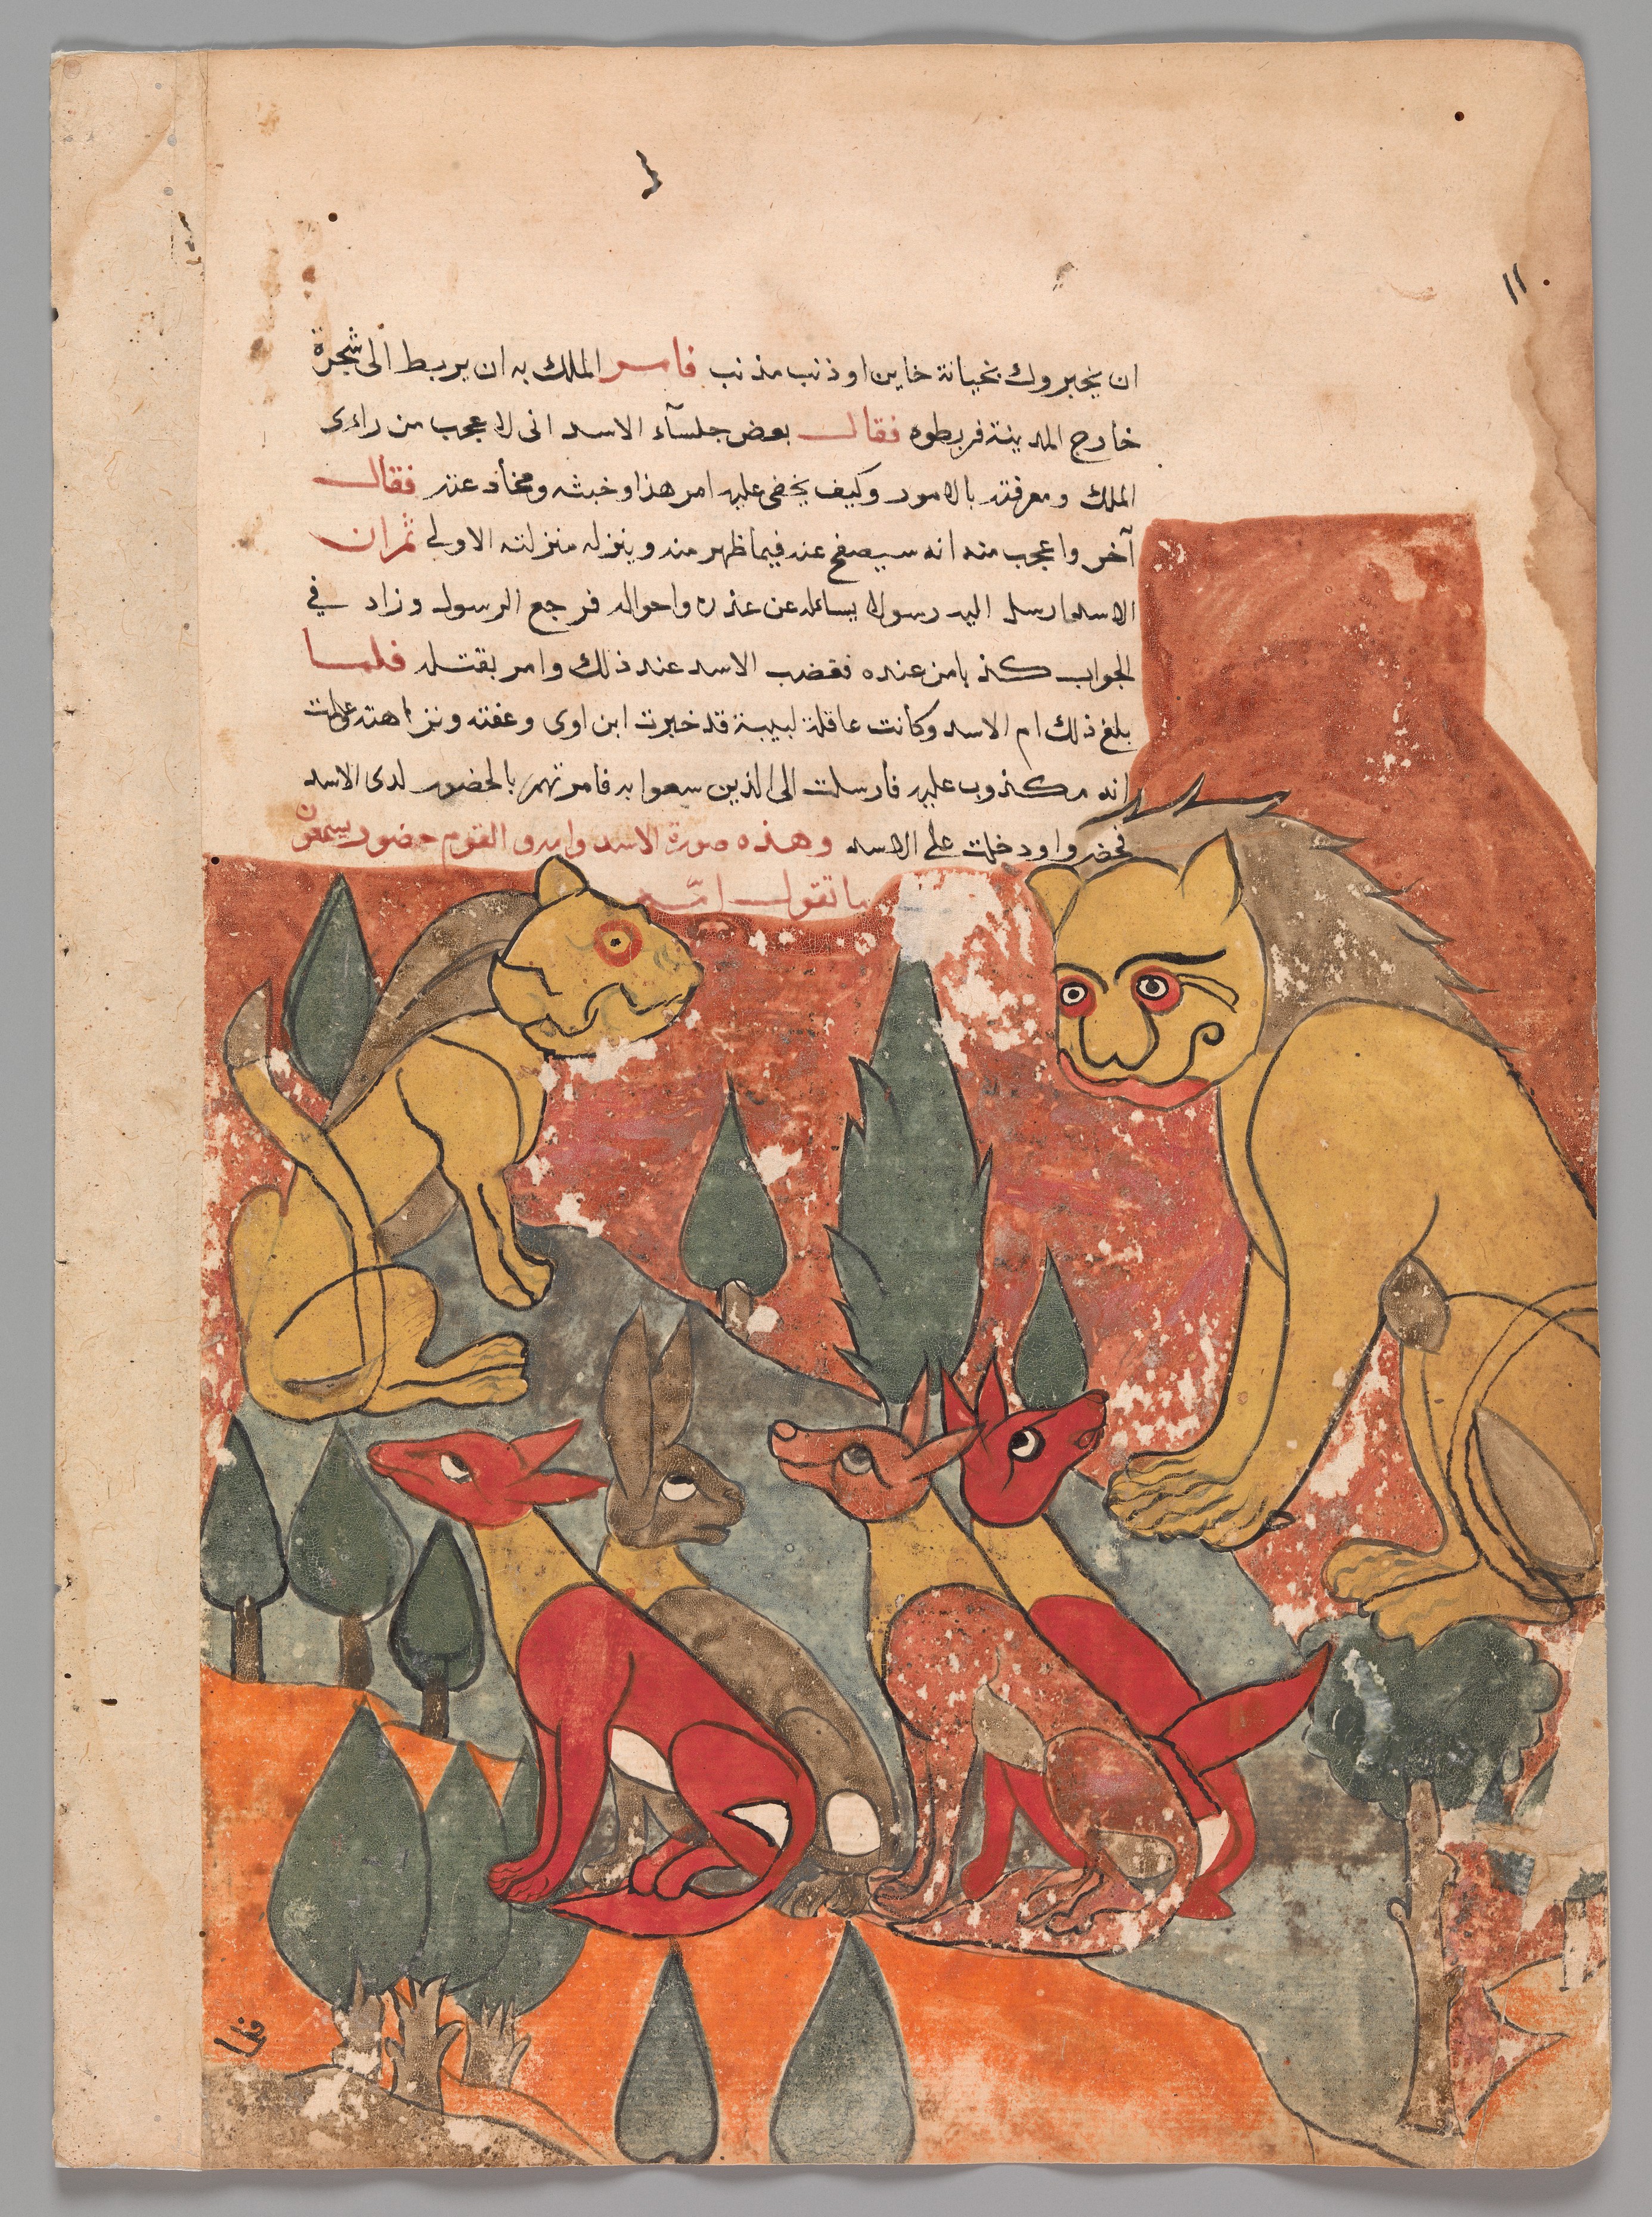 ١١
ان يخبروك بخيانة خاين او ذنب مذنب فامر الملك به ان يربط الى شجرة
خارج المدينة فربطوه فقال بعض جلسآء الاسد انى لاعجب من راءى
الملك ومعرفته بالامور وكيف يخفى عليه امر هذا وخبثه ومخاذعته فقال
آخر واعجب منه انه سيصفح عنه فيما ظهر منه وينزله منزلته الاولى ثم ان
الاسد ارسل اليه رسولا يسائله عن عذره واحواله فرجع الرسول وزاد في
الجواب كذبا من عنده فغضب الاسد عند ذلك وامر بقتله فلما
بلغ ذلك ام الاسد وكانت عاقلة لبيبة قد خبرت ابن اوى وعفته ونزاهته وعلمت
انه مكذوب عليه فارسلت الى الذين سعوا به فامرتهم بالحضور لدى الاسد
فحضروا ودخلت على الاسد وهذه صورة الاسد وامه و القوم حضور يسمعون
ما تقول امه